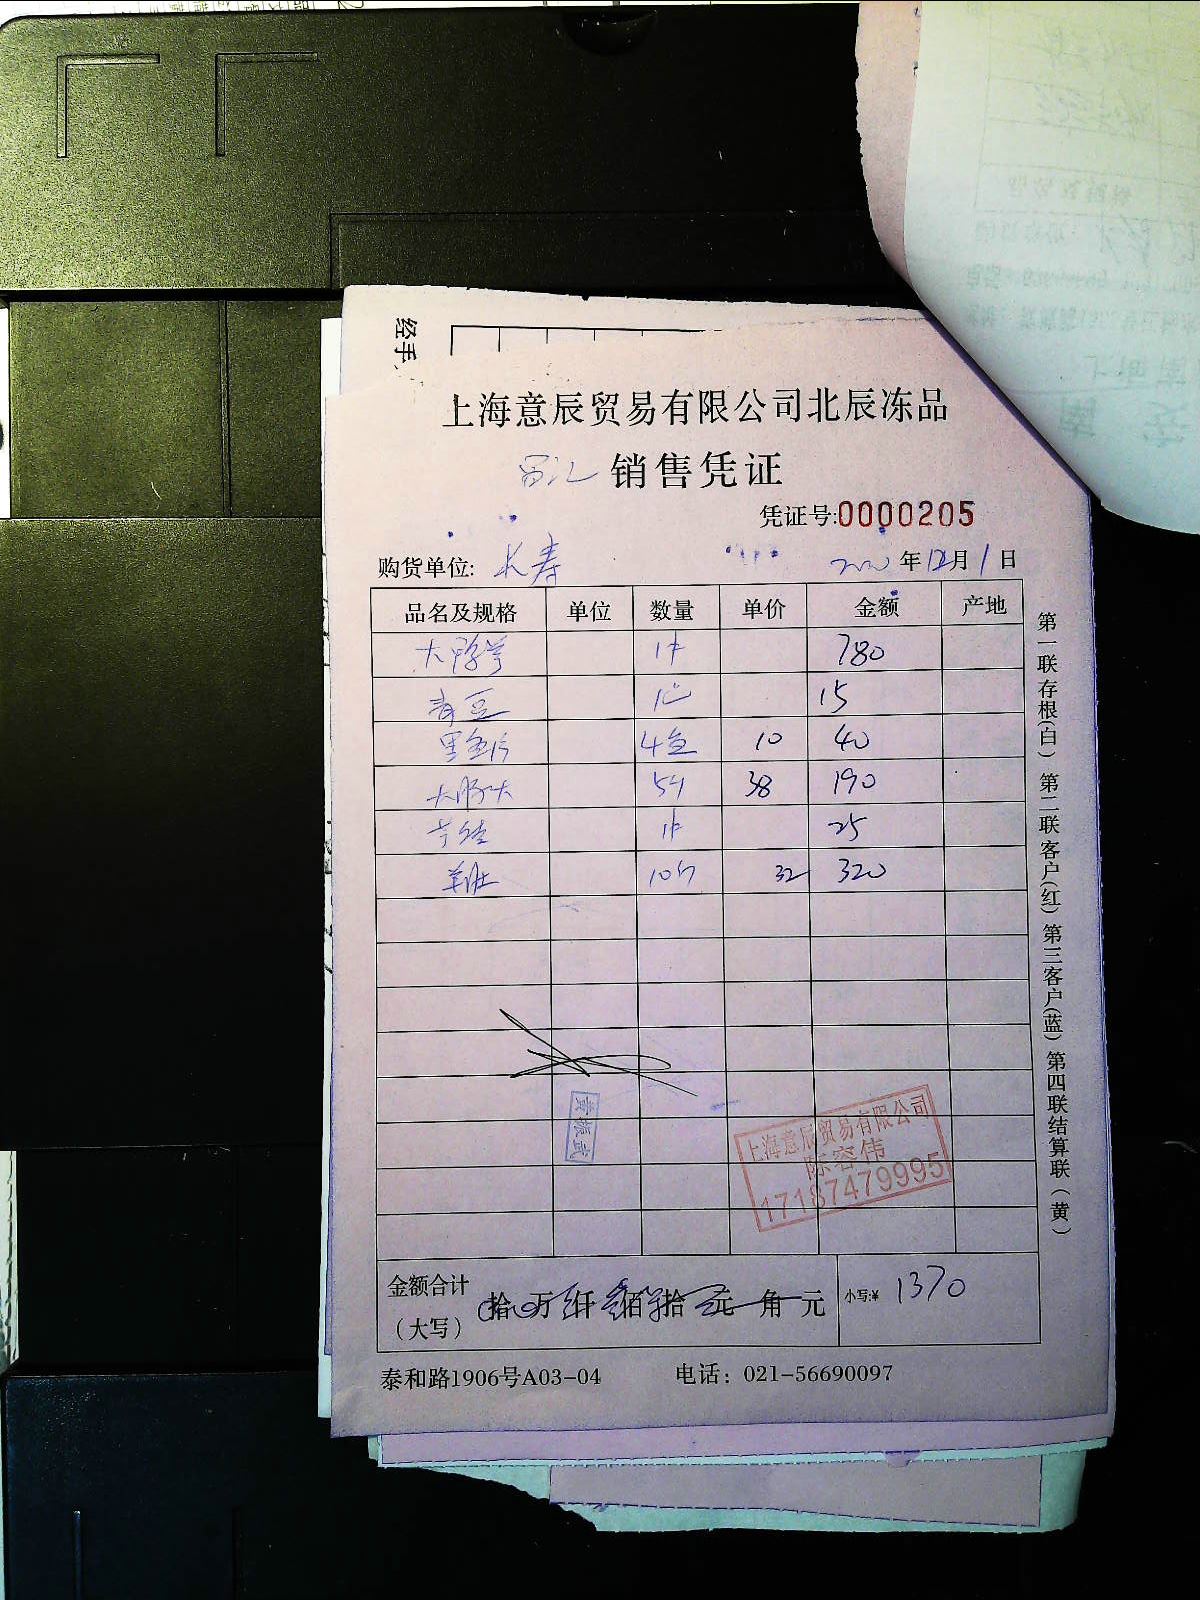 经手
上海意辰贸易有限公司北辰冻品
销售凭证
凭证号:0000205
购货单位: 长寿 2020年12月1日
品名及规格 单位 数量 单价 金额 产地
1件 780
青豆 1包 15
4盒 10 40
5斤 38 190
1件 25
羊肚 10斤 32 320
黄振武
上海意辰贸易有限公司
陈容伟
17187479995
金额合计
(大写) 拾 万 仟 佰 拾 元 角 元 小写:¥ 1370
泰和路1906号A03-04 电话: 021-56690097
第一联存根(白) 第二联客户(红) 第三客户(蓝) 第四联结算联(黄)